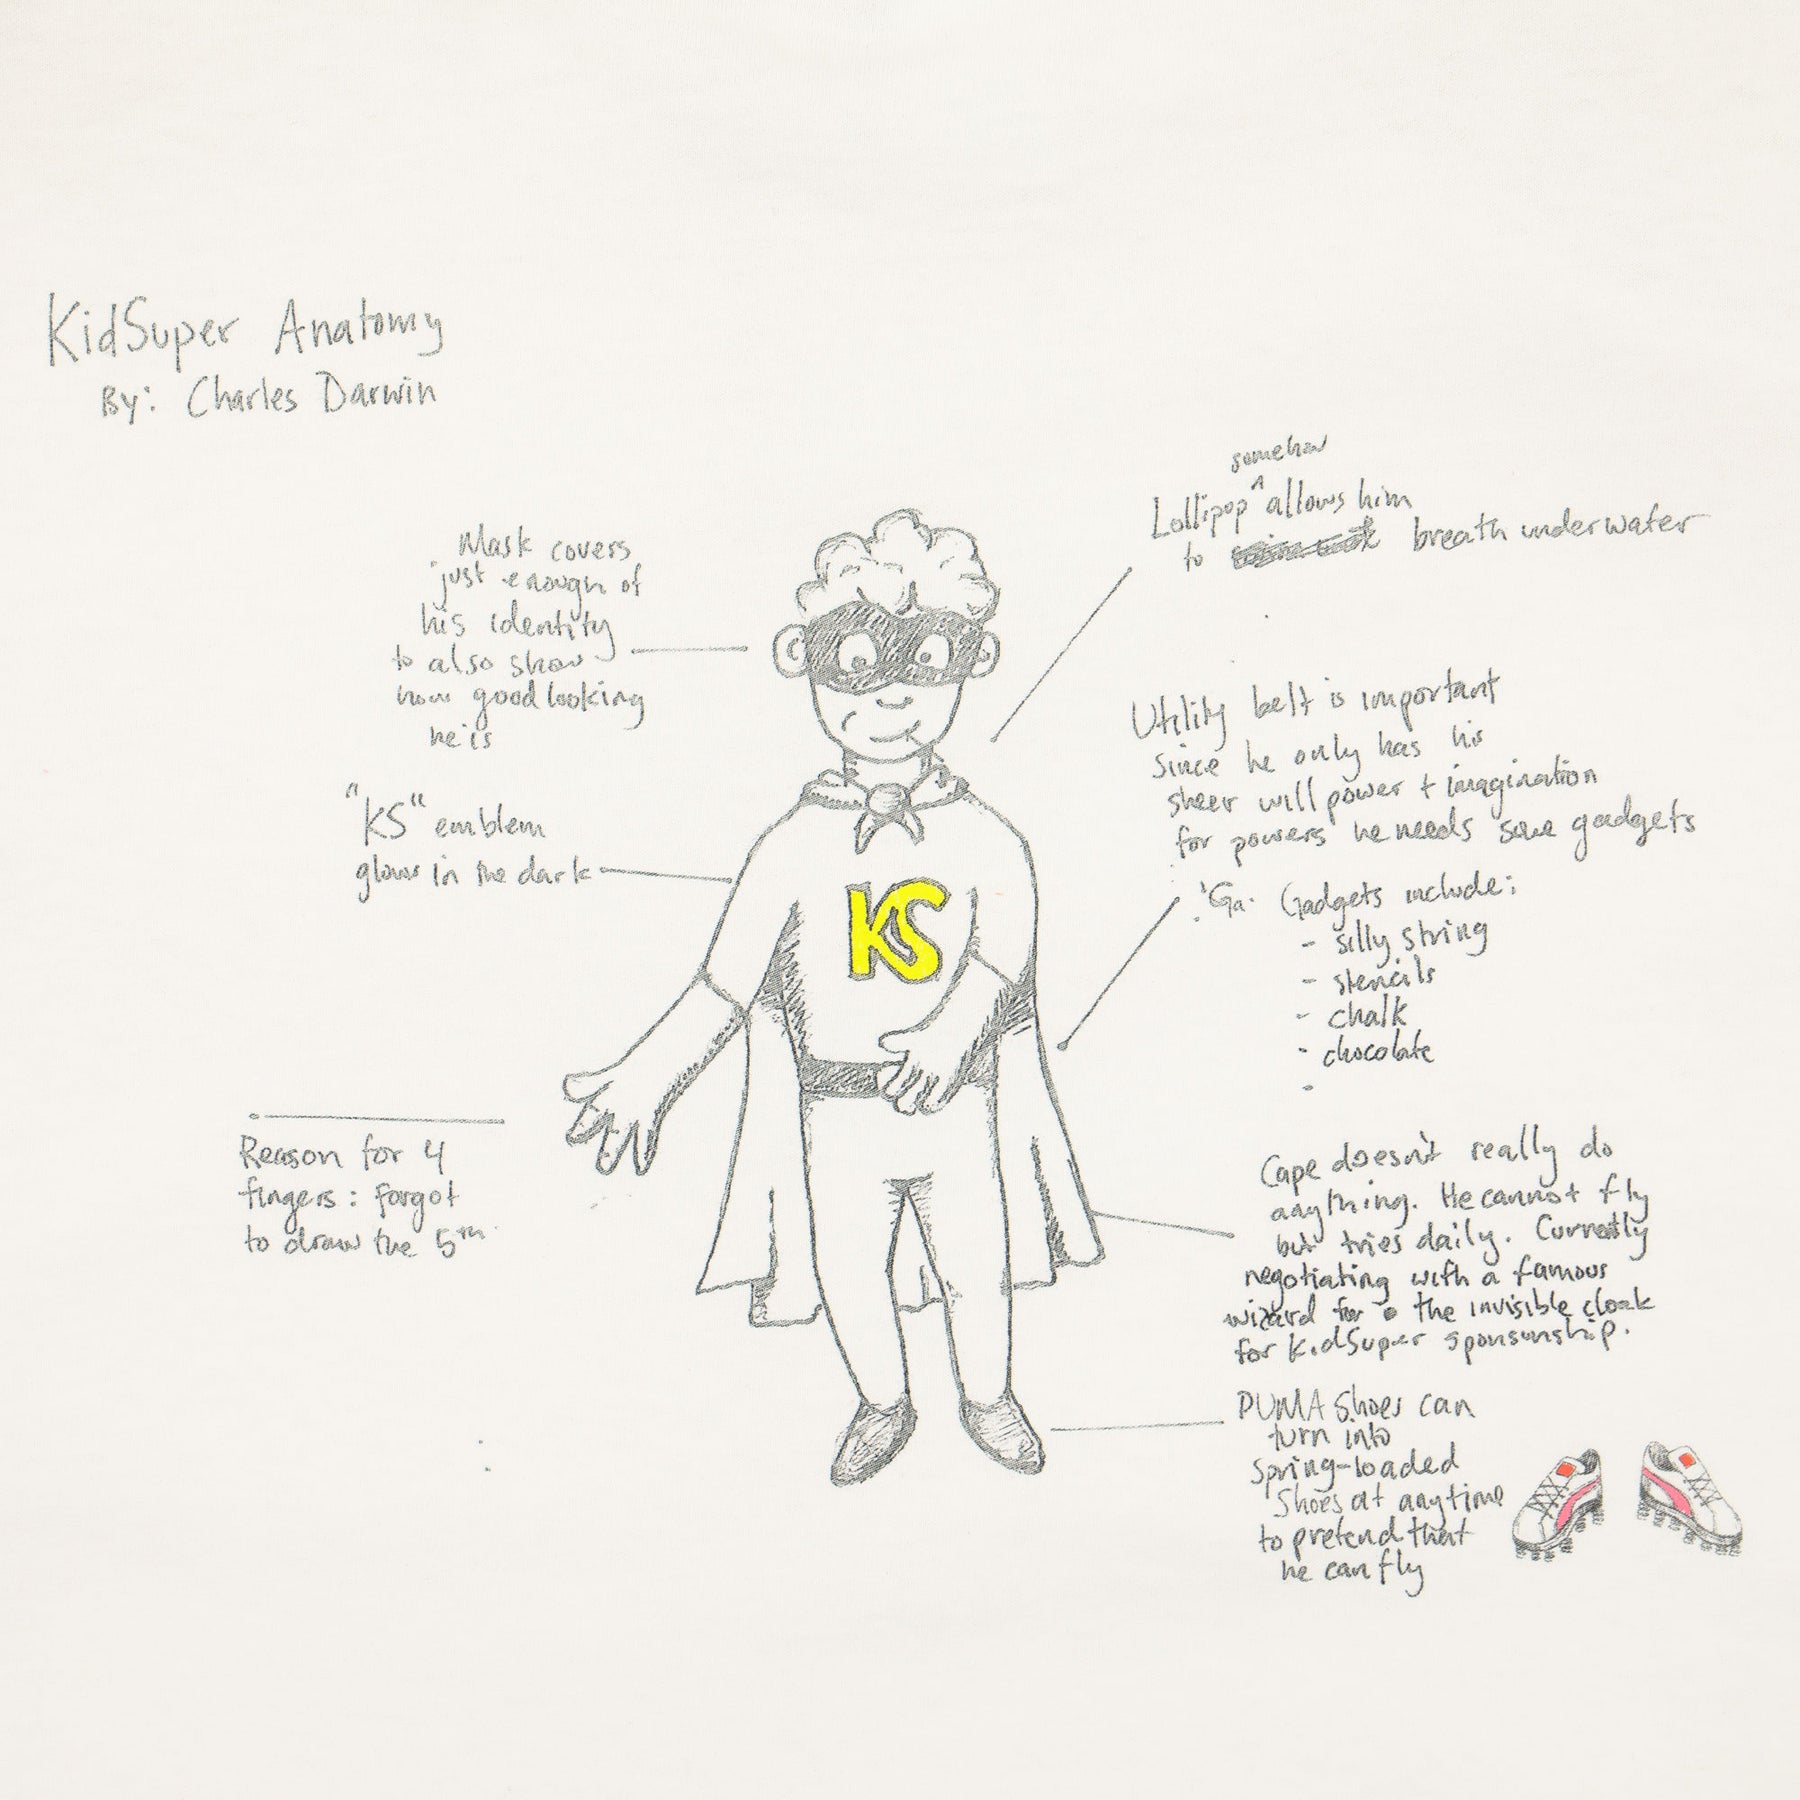 KidSuper Anatomy
By: Charles Darwin
somehow
Lollipop ^ allows him
to breath underwater
Mask covers
just enough of
his identity
to also show
how good looking
he is
"KS" emblem
glows in the dark
KS
Utility belt is important
since he only has his
sheer will power + imagination
for powers he needs some gadgets
Ga. Gadgets include:
- silly string
- stencils
- chalk
- chocolate
-
Reason for 4
fingers: forgot
to draw the 5th
Cape doesn't really do
anything. He cannot fly
but tries daily. Currently
negotiating with a famous
wizard for the invisible cloak
for KidSuper sponsorship.
PUMA shoes can
turn into
Spring-loaded
Shoes at anytime
to pretend that
he can fly